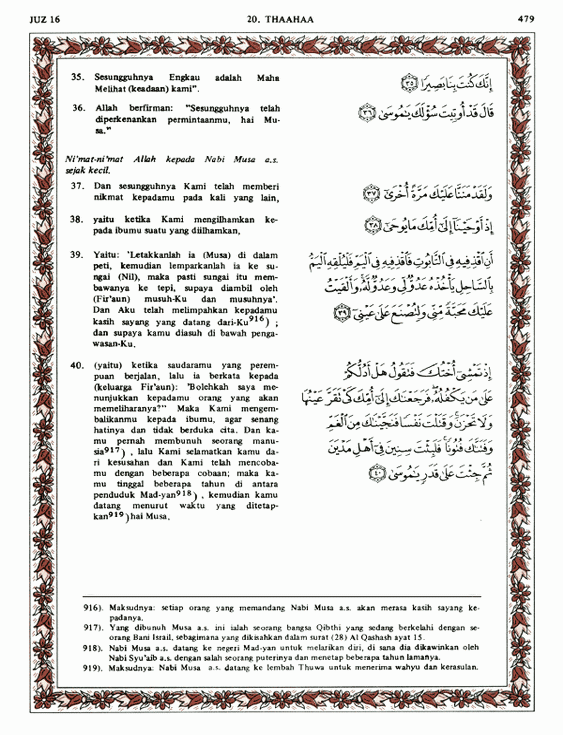 JUZ 16 20. THAAHAA 479
35. Sesungguhnya Engkau adalah Maha
Melihat (keadaan) kami".
إِنَّكَ كُنتَ بِنَا بَصِيرًا ﴿٣٥﴾
36. Allah berfirman: "Sesungguhnya telah
diperkenankan permintaanmu, hai Mu-
sa."
قَالَ قَدْ أُوتِيتَ سُؤْلَكَ يَٰمُوسَىٰ ﴿٣٦﴾
Ni'mat-ni'mat Allah kepada Nabi Musa a.s.
sejak kecil.
37. Dan sesungguhnya Kami telah memberi
nikmat kepadamu pada kali yang lain,
وَلَقَدْ مَنَنَّا عَلَيْكَ مَرَّةً أُخْرَىٰٓ ﴿٣٧﴾
38. yaitu ketika Kami mengilhamkan ke-
pada ibumu suatu yang diilhamkan,
إِذْ أَوْحَيْنَآ إِلَىٰٓ أُمِّكَ مَا يُوحَىٰٓ ﴿٣٨﴾
39. Yaitu: 'Letakkanlah ia (Musa) di dalam
peti, kemudian lemparkanlah ia ke su-
ngai (Nil), maka pasti sungai itu mem-
bawanya ke tepi, supaya diambil oleh
(Fir'aun) musuh-Ku dan musuhnya'.
Dan Aku telah melimpahkan kepadamu
kasih sayang yang datang dari-Ku916) ;
dan supaya kamu diasuh di bawah penga-
wasan-Ku.
أَنِ ٱقْذِفِيهِ فِى ٱلتَّابُوتِ فَٱقْذِفِيهِ فِى ٱلْيَمِّ فَلْيُلْقِهِ ٱلْيَمُّ
بِٱلسَّاحِلِ يَأْخُذْهُ عَدُوٌّ لِّى وَعَدُوٌّ لَّهُۥ وَأَلْقَيْتُ
عَلَيْكَ مَحَبَّةً مِّنِّى وَلِتُصْنَعَ عَلَىٰ عَيْنِىٓ ﴿٣٩﴾
40. (yaitu) ketika saudaramu yang perem-
puan berjalan, lalu ia berkata kepada
(keluarga Fir'aun): 'Bolehkah saya me-
nunjukkan kepadamu orang yang akan
memeliharanya?" Maka Kami mengem-
balikanmu kepada ibumu, agar senang
hatinya dan tidak berduka cita. Dan ka-
mu pernah membunuh seorang manu-
sia917) , lalu Kami selamatkan kamu da-
ri kesusahan dan Kami telah mencoba-
mu dengan beberapa cobaan; maka ka-
mu tinggal beberapa tahun di antara
penduduk Mad-yan918) , kemudian kamu
datang menurut waktu yang ditetap-
kan919) hai Musa.
إِذْ تَمْشِىٓ أُخْتُكَ فَتَقُولُ هَلْ أَدُلُّكُمْ
عَلَىٰ مَن يَكْفُلُهُۥ فَرَجَعْنَٰكَ إِلَىٰٓ أُمِّكَ كَىْ تَقَرَّ عَيْنُهَا
وَلَا تَحْزَنَ وَقَتَلْتَ نَفْسًا فَنَجَّيْنَٰكَ مِنَ ٱلْغَمِّ
وَفَتَنَّٰكَ فُتُونًا فَلَبِثْتَ سِنِينَ فِىٓ أَهْلِ مَدْيَنَ
ثُمَّ جِئْتَ عَلَىٰ قَدَرٍ يَٰمُوسَىٰ ﴿٤٠﴾
916). Maksudnya: setiap orang yang memandang Nabi Musa a.s. akan merasa kasih sayang ke-
padanya.
917). Yang dibunuh Musa a.s. ini ialah seorang bangsa Qibthi yang sedang berkelahi dengan se-
orang Bani Israil, sebagaimana yang dikisahkan dalam surat (28) Al Qashash ayat 15.
918). Nabi Musa a.s. datang ke negeri Mad-yan untuk melarikan diri, di sana dia dikawinkan oleh
Nabi Syu'aib a.s. dengan salah seorang puterinya dan menetap beberapa tahun lamanya.
919). Maksudnya: Nabi Musa a.s. datang ke lembah Thuwa untuk menerima wahyu dan kerasulan.